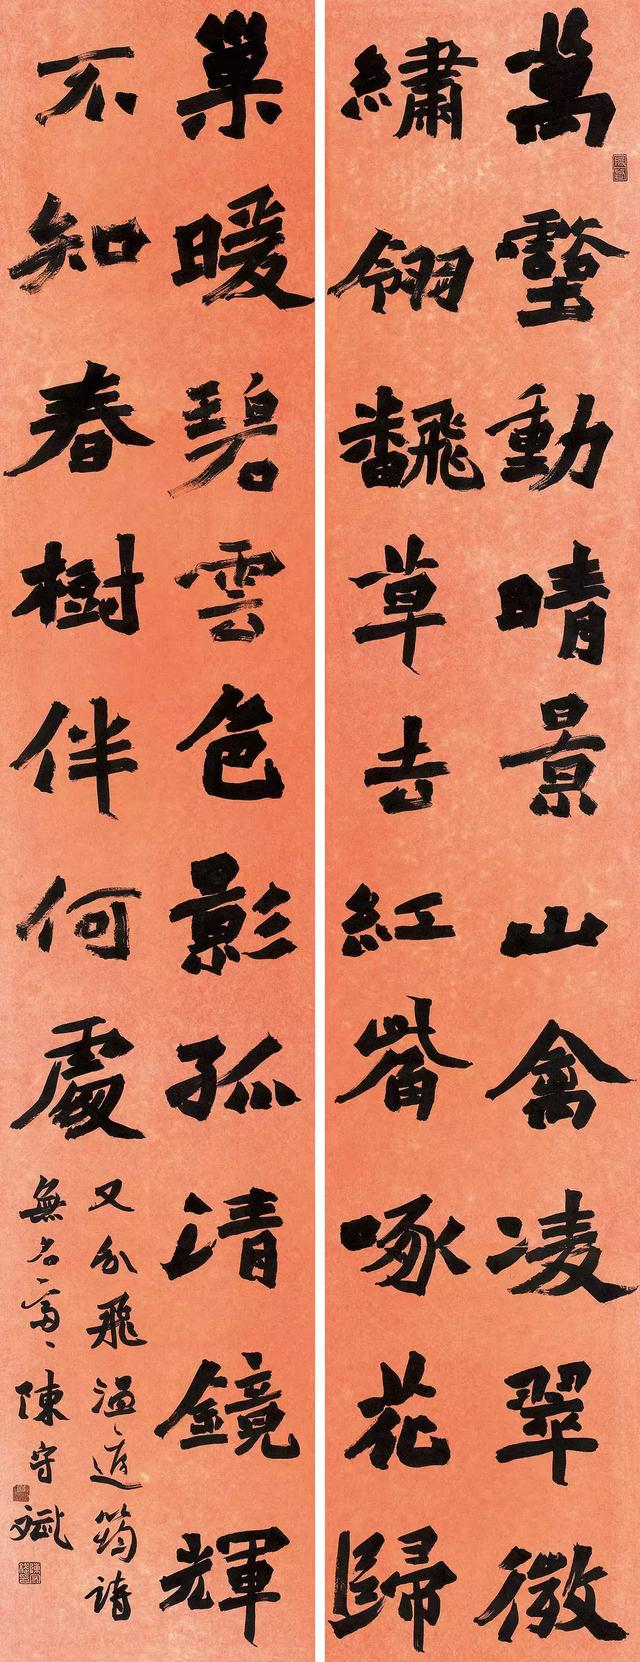 萬壑動晴景山禽凌翠微
繡翎飜草去紅觜啄花歸
巢暖碧雲色影孤清鏡輝
不知春樹伴何處
又分飛温庭筠詩
無名齋陳守斌